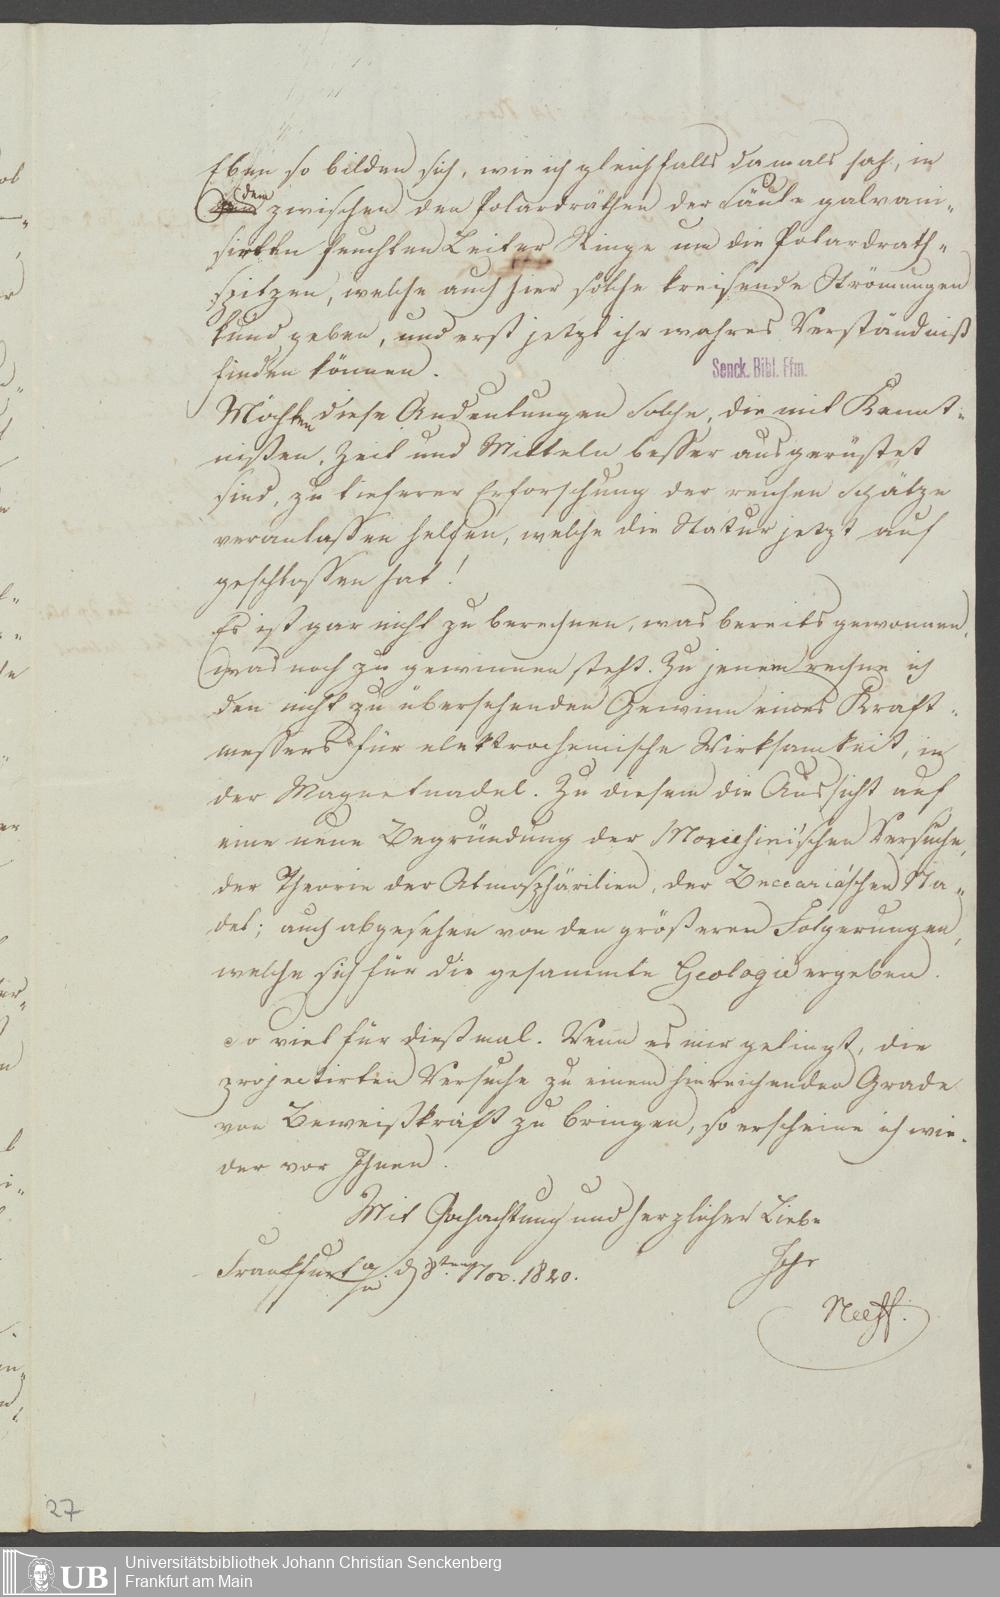 Eben so bilden sich, wie ich gleichfalls damals sah, in
dem zwischen den Polardräthen der Säule galvani-
sirten feuchten Leiter Ringe um die Polardrath-
spitzen, welche auch hier solche kreisende Strömungen
kund geben, und erst jetzt ihr wahres Verständniß
finden können.
Senck. Bibl. Ffm.
Möchten diese Andeutungen Solche, die mit Kennt-
nißen, Zeit und Mitteln besser ausgerüstet
sind, zu tieferer Erforschung der reichen Schätze
veranlassen helfen, welche die Natur jetzt auf
geschlossen hat!
Es ist gar nicht zu berechnen, was bereits gewonnen,
was noch zu gewinnen steht. Zu jenem rechne ich
den nicht zu übersehenden Gewinn eines Kraft-
messers für elektrochemische Wirksamkeit, in
der Magnetnadel. Zu diesem die Aussicht auf
eine neue Begründung der Morichini'schen Versuche,
der Theorie der Atmosphärilien, der Beccaria'schen Na-
del; auch abgesehen von den größeren Folgerungen,
welche sich für die gesammte Geologie ergeben.
So viel für dießmal. Wenn es mir gelingt, die
projectirten Versuche zu einem hinreichenden Grade
von Beweißkraft zu bringen, so erscheine ich wie-
der vor Ihnen.
Mit Hochachtung und herzlicher Liebe
Frankfurt a/m. d 8ten Nov. 1820.
Ihr
Neeff.
27
UB
Universitätsbibliothek Johann Christian Senckenberg
Frankfurt am Main